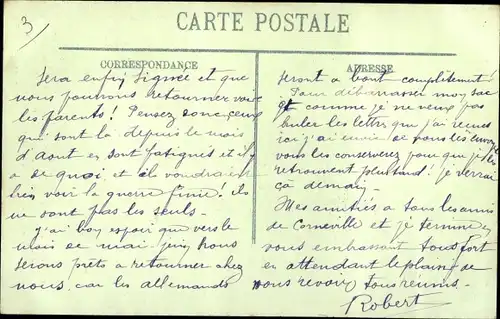 3
CARTE POSTALE
CORRESPONDANCE
sera enfin signée et que
nous pourrons retourner voir
les parents! Pensez donc ceux
qui sont là depuis le mois
d'aout en sont fatigués et il y
a de quoi et ils voudraient
bien voir la guerre finie! ils
ne sont pas les seuls.
J'ai bon espoir que vers le
mois de mai juin nous
serons prêts a retourner chez
nous, car les allemands
ADRESSE
seront a bout complètement!
Pour débarrasser mon sac
et comme je ne veux pas
buler les lettres que j'ai reçues
ici j'ai envie de vous les
vous les conserverez pour que je les
retrouvent plus tard! je verrai
ça demain.
Mes amitiés a tous les amis
de Corneville et je termine en
vous embrassant tous fort
en attendant le plaisir de
vous revoir tous réunis.
Robert